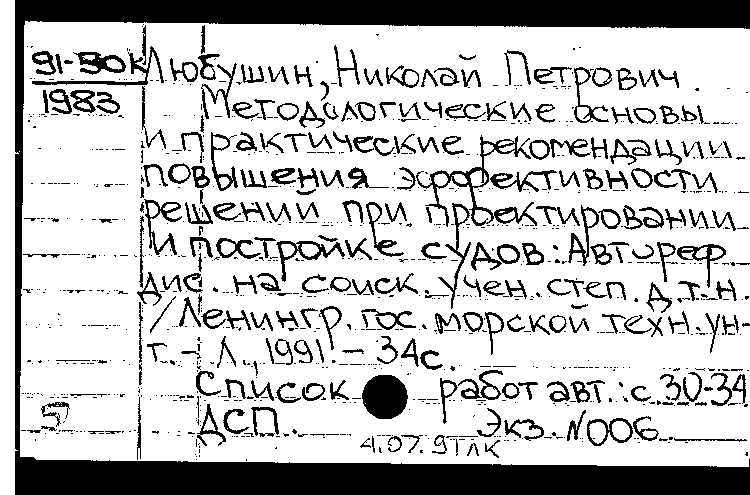 91-50к Любушин, Николай Петрович.
1983 Методологические основы
и практические рекомендации
повышения эффективности
решений при проектировании
и постройке судов: Автореф.
дис. на соиск. учен. степ. д.т.н.
/Ленингр. гос. морской техн. ун-
т. - Л., 1991. - 34с.
Список работ авт.: с. 30-34
5 ДСП. Экз. №006.
4.07.91 ЛК